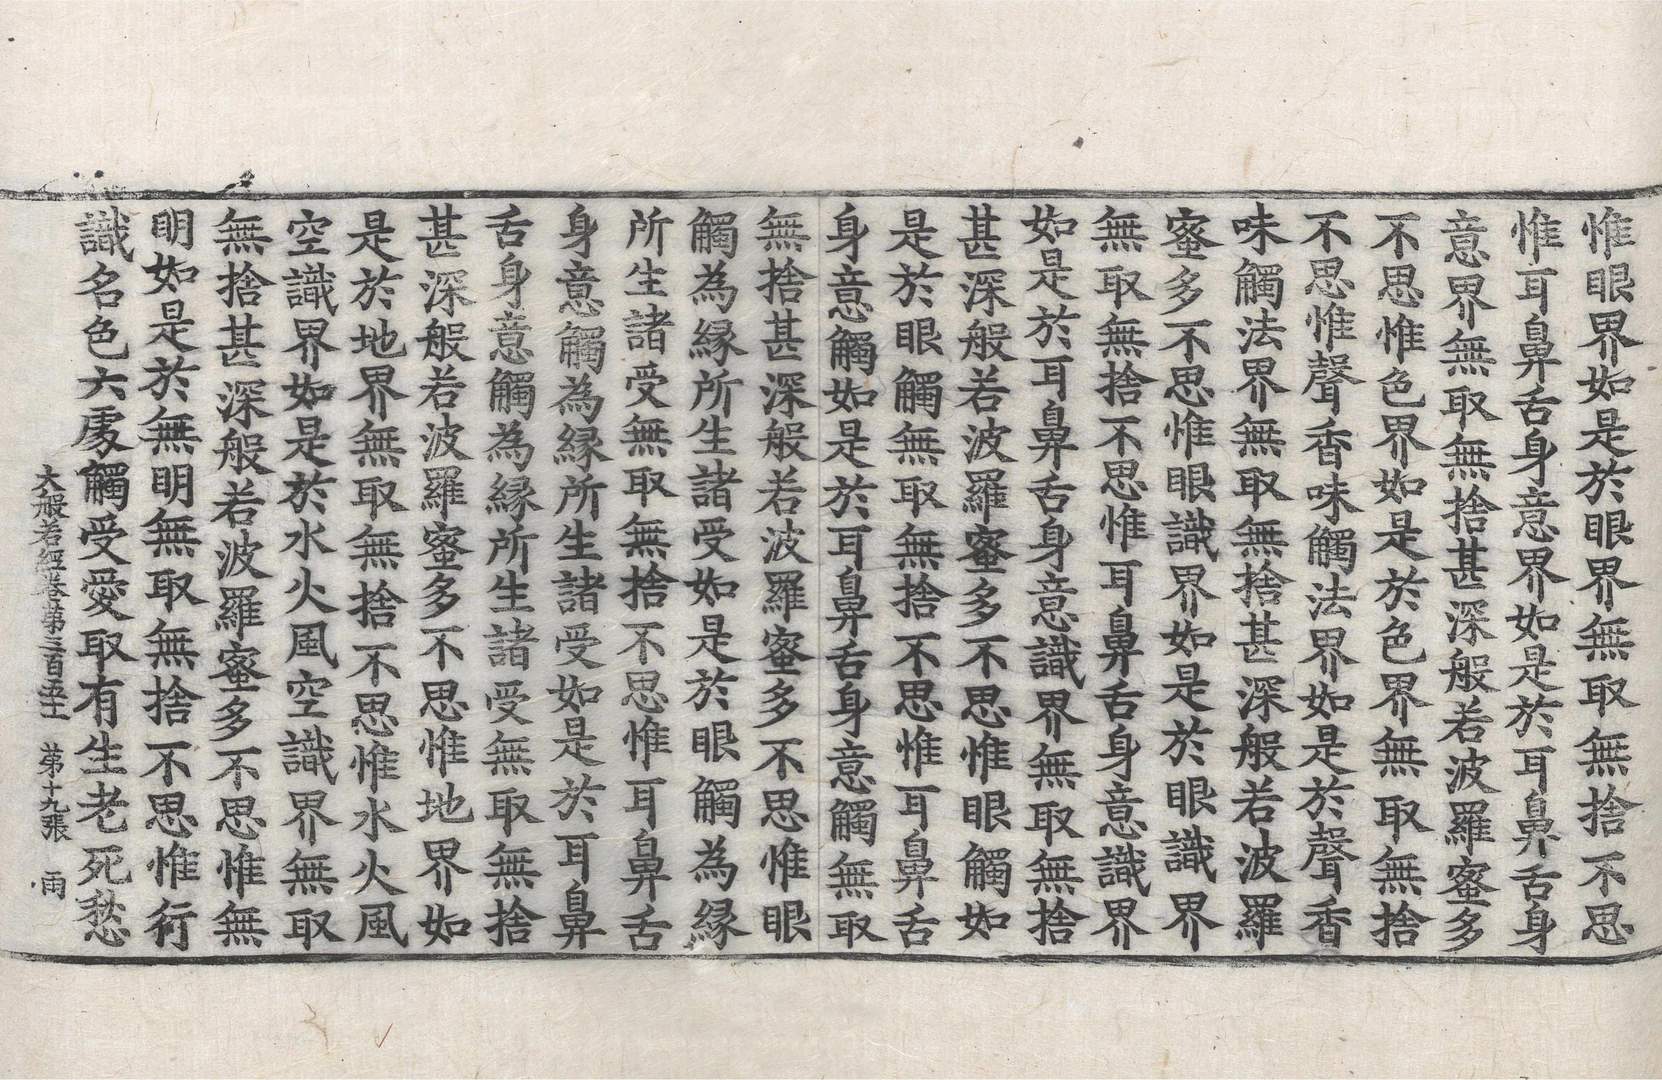 惟眼界如是於眼界無取無捨不思
惟耳鼻舌身意界如是於耳鼻舌身
意界無取無捨甚深般若波羅蜜多
不思惟色界如是於色界無取無捨
不思惟聲香味觸法界如是於聲香
味觸法界無取無捨甚深般若波羅
蜜多不思惟眼識界如是於眼識界
無取無捨不思惟耳鼻舌身意識界
如是於耳鼻舌身意識界無取無捨
甚深般若波羅蜜多不思惟眼觸如
是於眼觸無取無捨不思惟耳鼻舌
身意觸如是於耳鼻舌身意觸無取
無捨甚深般若波羅蜜多不思惟眼
觸為縁所生諸受如是於眼觸為縁
所生諸受無取無捨不思惟耳鼻舌
身意觸為縁所生諸受如是於耳鼻
舌身意觸為縁所生諸受無取無捨
甚深般若波羅蜜多不思惟地界如
是於地界無取無捨不思惟水火風
空識界如是於水火風空識界無取
無捨甚深般若波羅蜜多不思惟無
明如是於無明無取無捨不思惟行
識名色六處觸受愛取有生老死愁
大般若經卷第三百五十 第十九張 雨